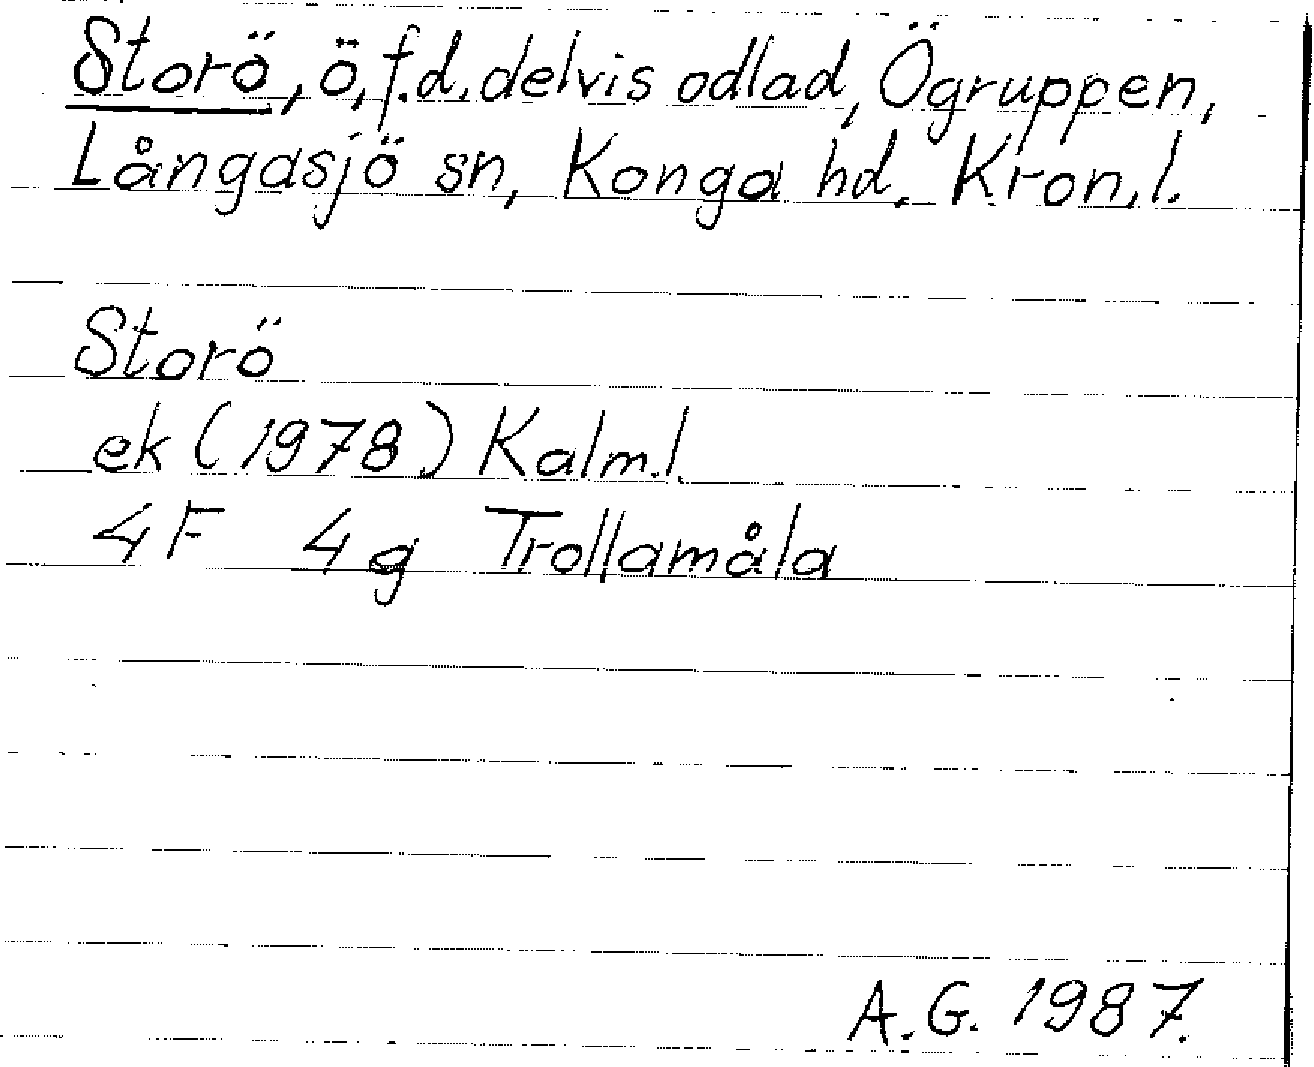 Storö, ö, f.d. delvis odlad, Ögruppen,
Långasjö sn, Konga hd, Kron. l.
Storö
ek (1978) Kalm. l.
4F 4g Trollamåla
A.G. 1987.